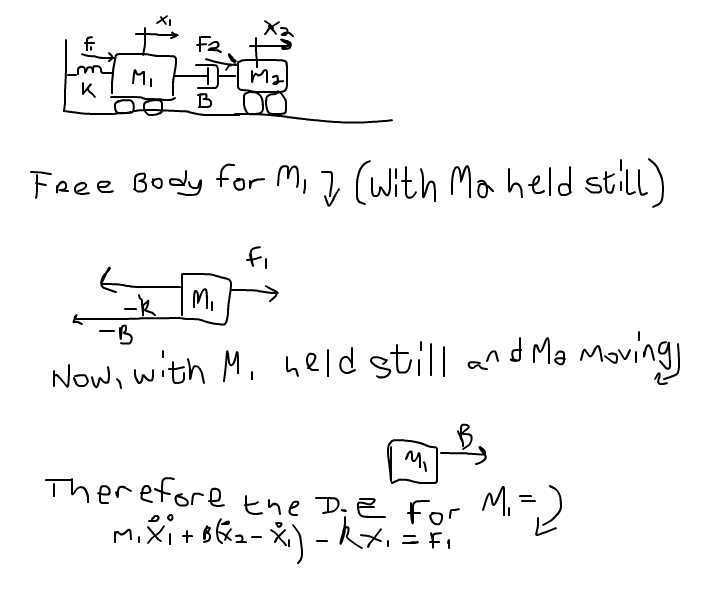 x₁ x₂
f₁ F₂
M₁ M₂
K B
Free Body for M₁ (with Ma held still)
F₁
M₁
-k
-B
Now, with M₁ held still and Ma moving
B
M₁
Therefore the D.E for M₁ =
m₁ẍ₁ + B(ẋ₂ - ẋ₁) - kx₁ = F₁